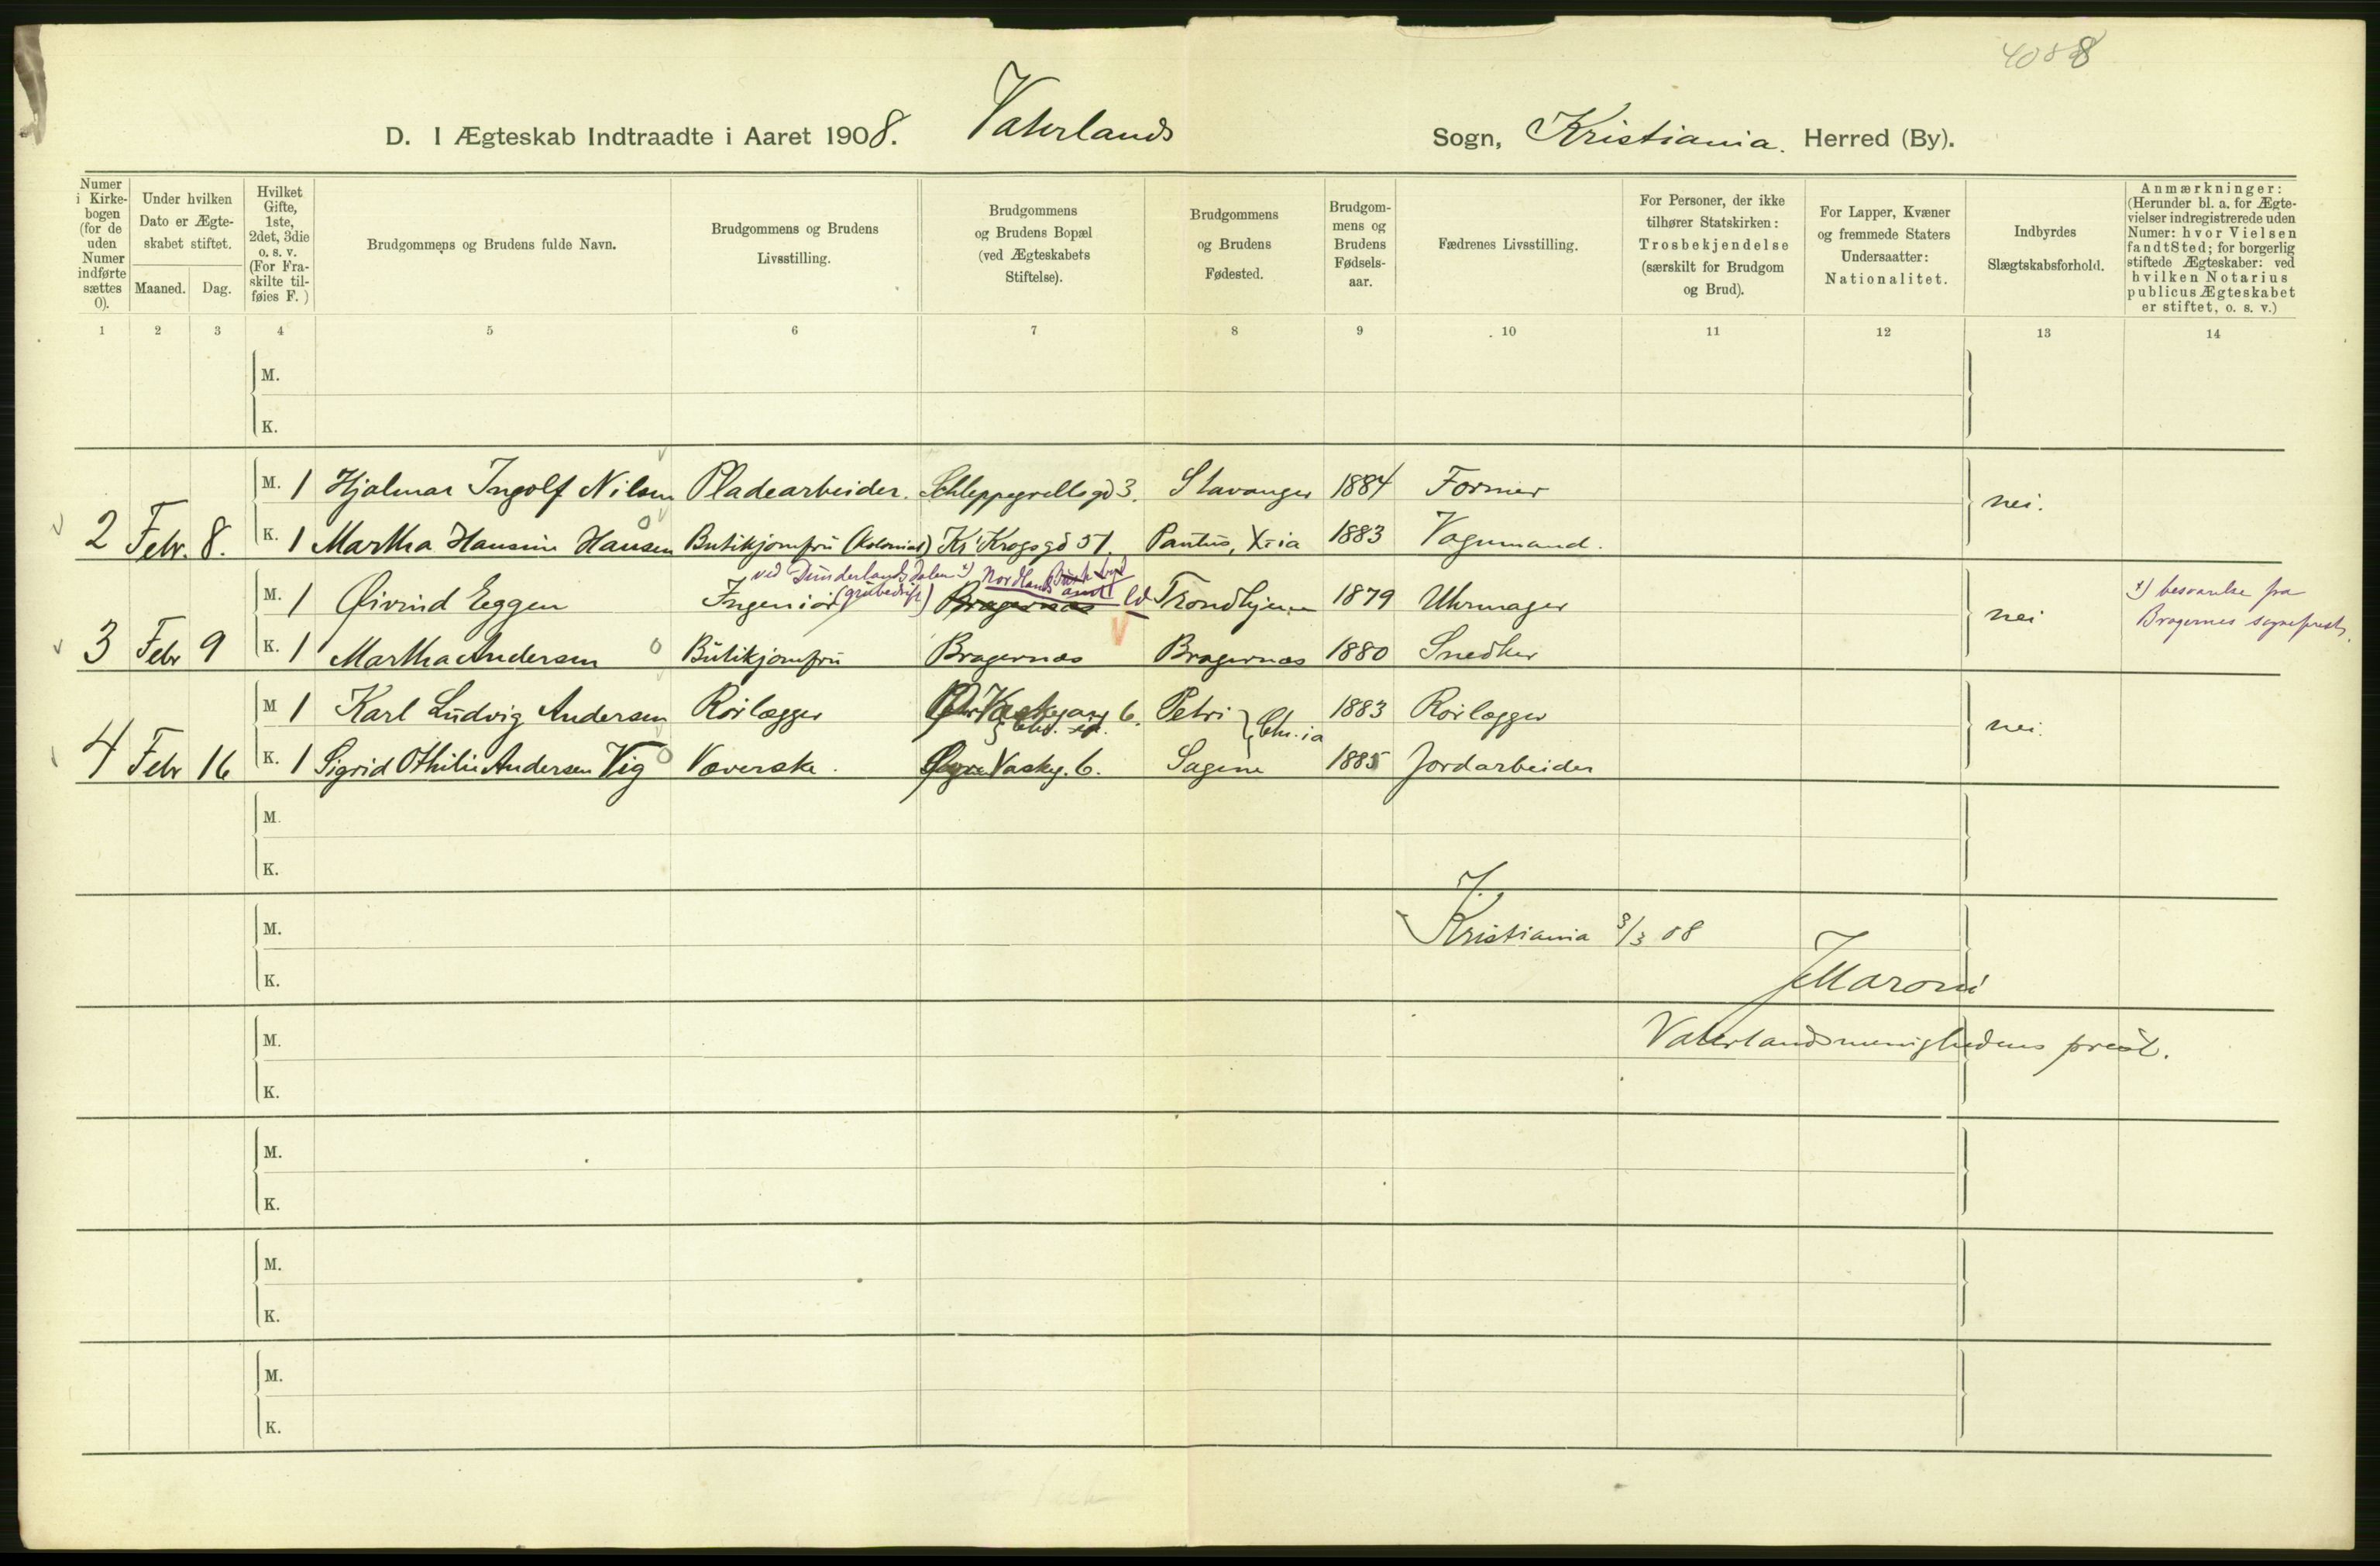 4088
D. I Ægteskab Indtraadte i Aaret 1908. Vaterlands Sogn, Kristiania. Herred (By).
Numer i Kirkebogen (for de uden Numer indførte sættes 0).
Under hvilken Dato er Ægteskabet stiftet.
Maaned. Dag.
Hvilket Gifte, 1ste, 2det, 3die o. s. v. (For Fraskilte tilføies F.)
Brudgommens og Brudens fulde Navn.
Brudgommens og Brudens Livsstilling.
Brudgommens og Brudens Bopæl (ved Ægteskabets Stiftelse).
Brudgommens og Brudens Fødested.
Brudgommens og Brudens Fødselsaar.
Fædrenes Livsstilling.
For Personer, der ikke tilhører Statskirken: Trosbekjendelse (særskilt for Brudgom og Brud).
For Lapper, Kvæner og fremmede Staters Undersaatter: Nationalitet.
Indbyrdes Slægtskabsforhold.
Anmærkninger: (Herunder bl. a. for Ægtevielser indregistrerede uden Numer: hvor Vielsen fandt Sted; for borgerlig stiftede Ægteskaber: ved hvilken Notarius publicus Ægteskabet er stiftet, o. s. v.)
1 2 3 4 5 6 7 8 9 10 11 12 13 14
M.
K.
M. 1 Hjalmar Ingolf Nilsen Pladearbeider. Schleppegrellsgd 3. Stavanger 1884 Former nei.
2 Febr. 8. K. 1 Martha Hansine Hansen Butikjomfru (Kolonial) Kr Krogsgd 51. Paulus, X-ia 1883 Vognmand.
ved Dunderlandsdalen x) Nordlands amt
M. 1 Øivind Eggen Ingeniør (grubedrift) Bragernæs Trondhjem 1879 Uhrmager nei x) besvarelse fra Bragernes sogneprest.
3 Febr 9 K. 1 Martha Andersen Butikjomfru Bragernæs Bragernæs 1880 Snedker
M 1 Karl Ludvig Andersen Rørlægger 6. Petri } Chr.ia 1883 Rørlægger nei.
4 Febr 16 K. 1 Sigrid Othilie Andersen Vig Væverske. Vaskeg. 6. Sagene 1885 Jordarbeider
M.
K.
M. Kristiania 3/3 08
K. JMaroni
M. Vaterlandsmenighedens prest.
K.
M.
K.
M.
K.
M.
K.